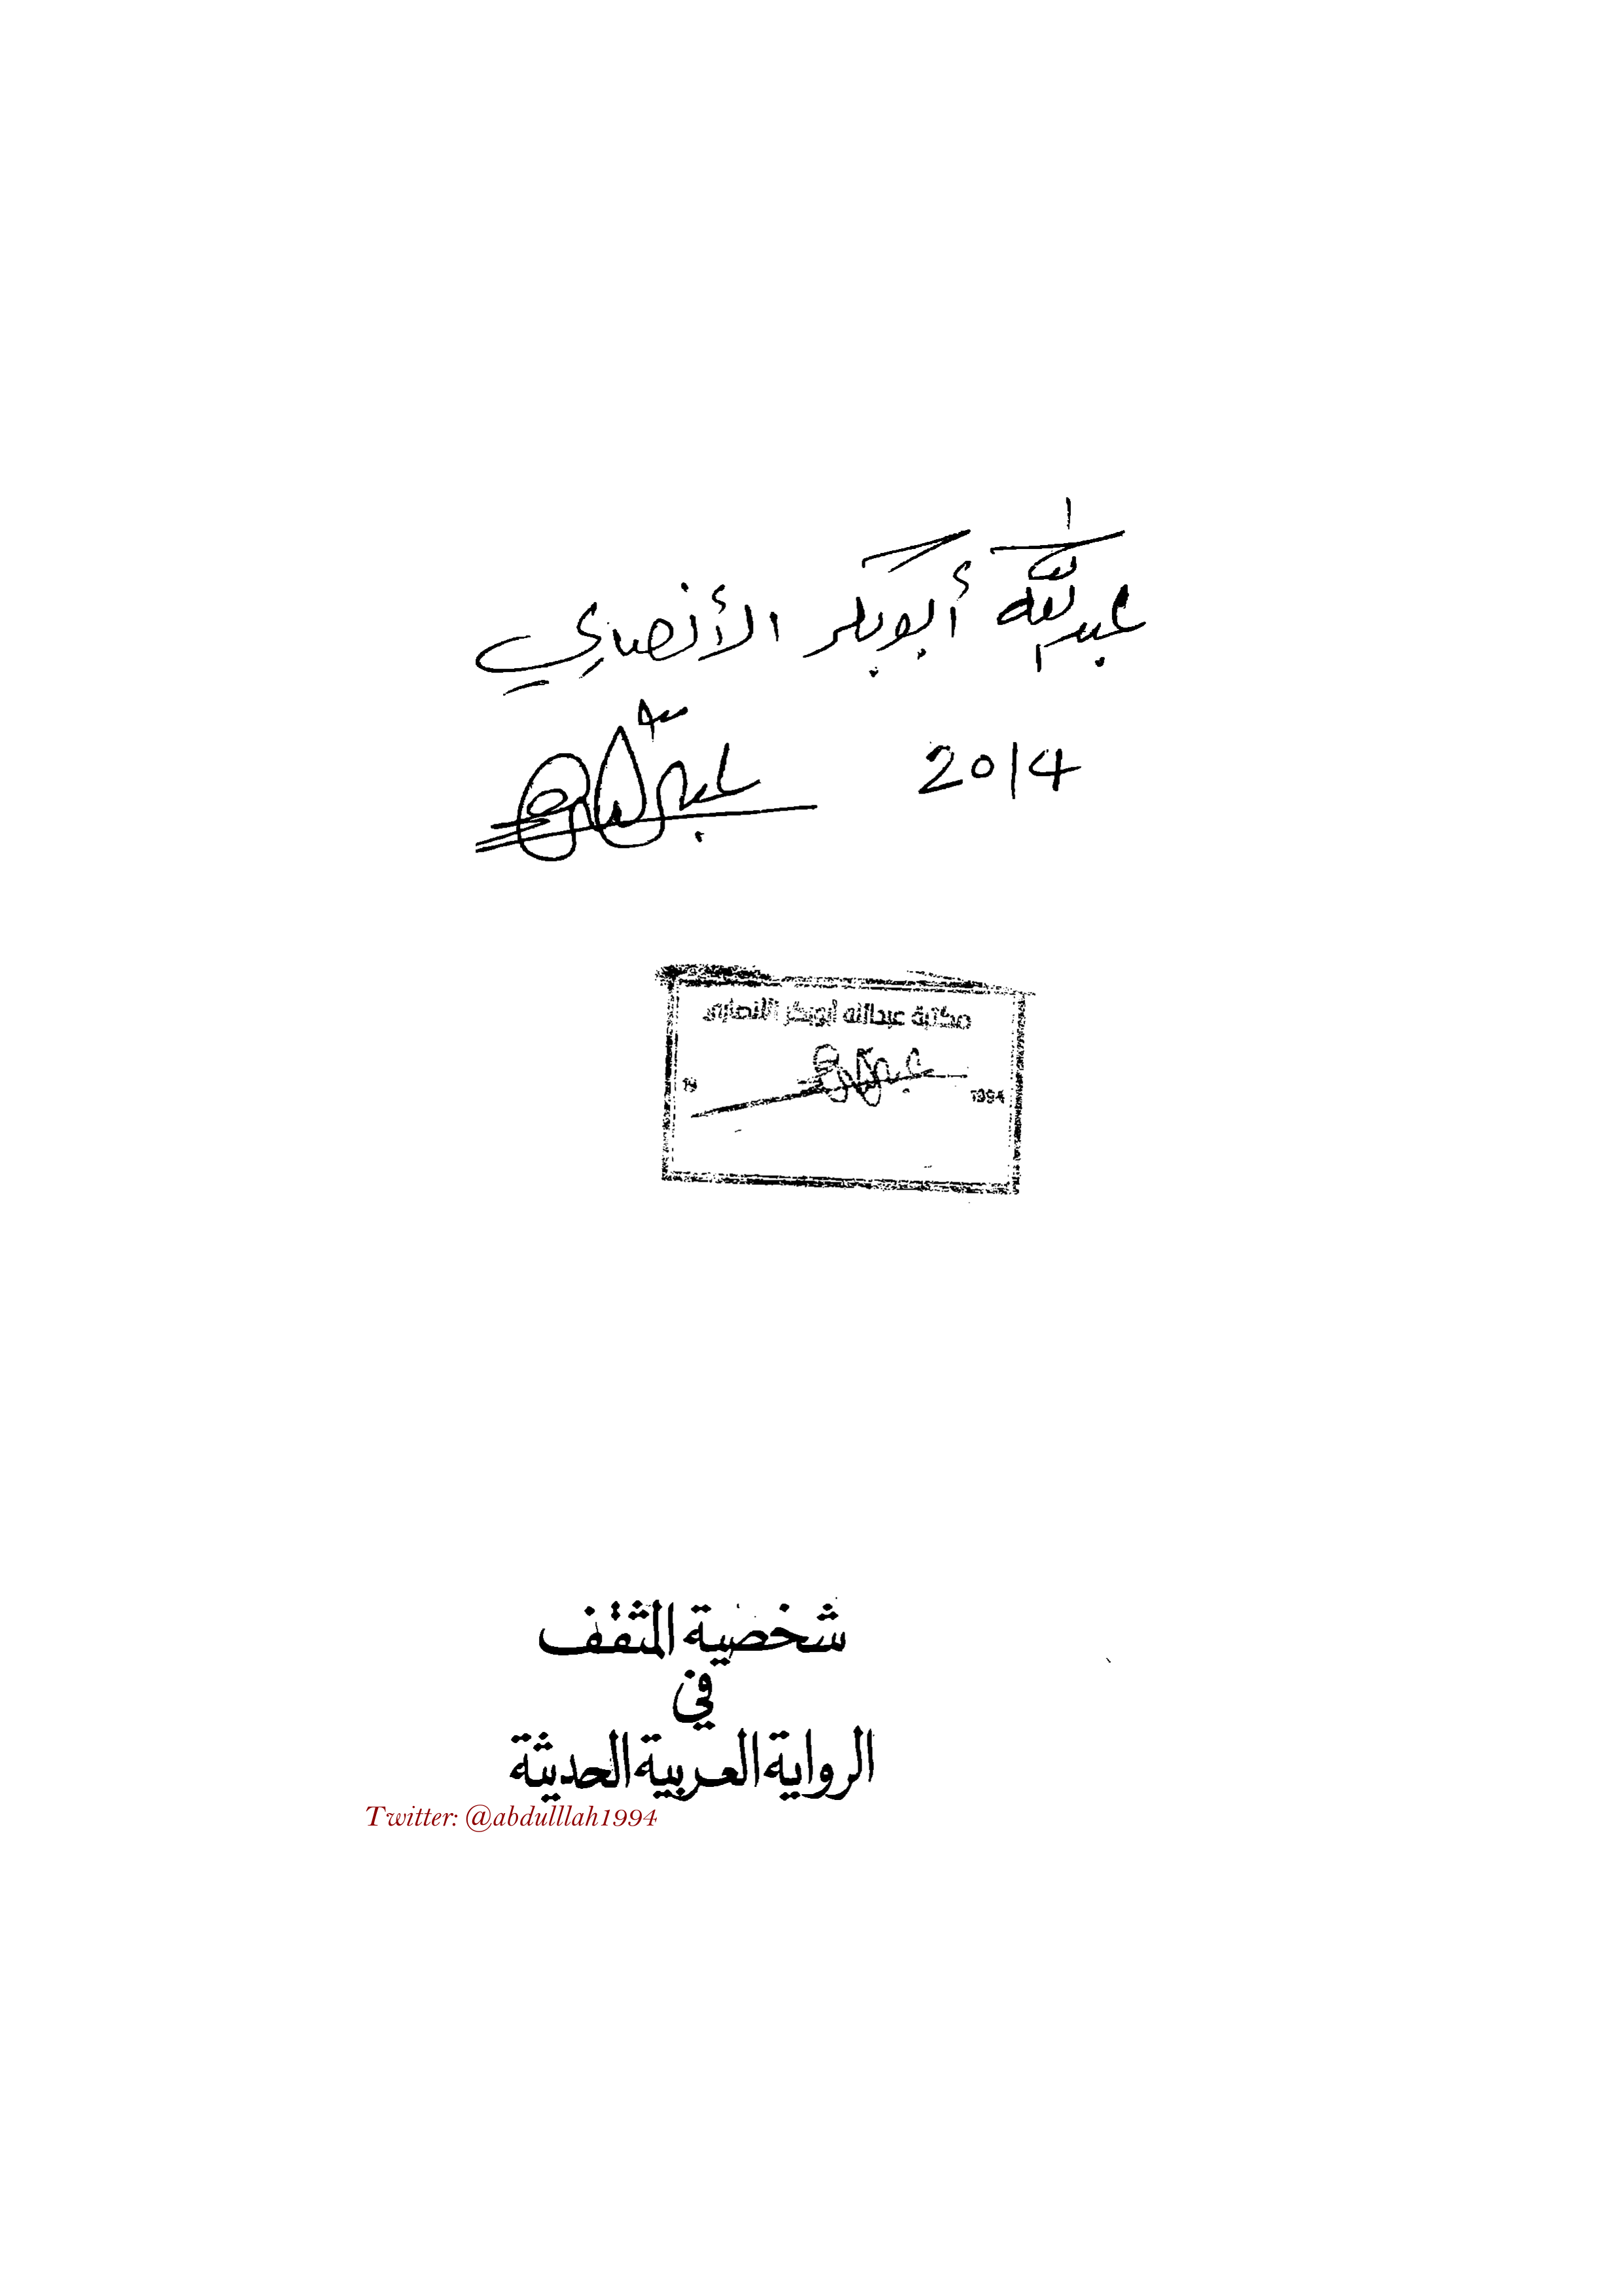 عبدالله أبوبكر الأنصاري
2014
مكتبة عبدالله أبوبكر الأنصاري
19
1994
شخصية المثقف
في
الرواية العربية الحديثة
Twitter: @abdulllah1994